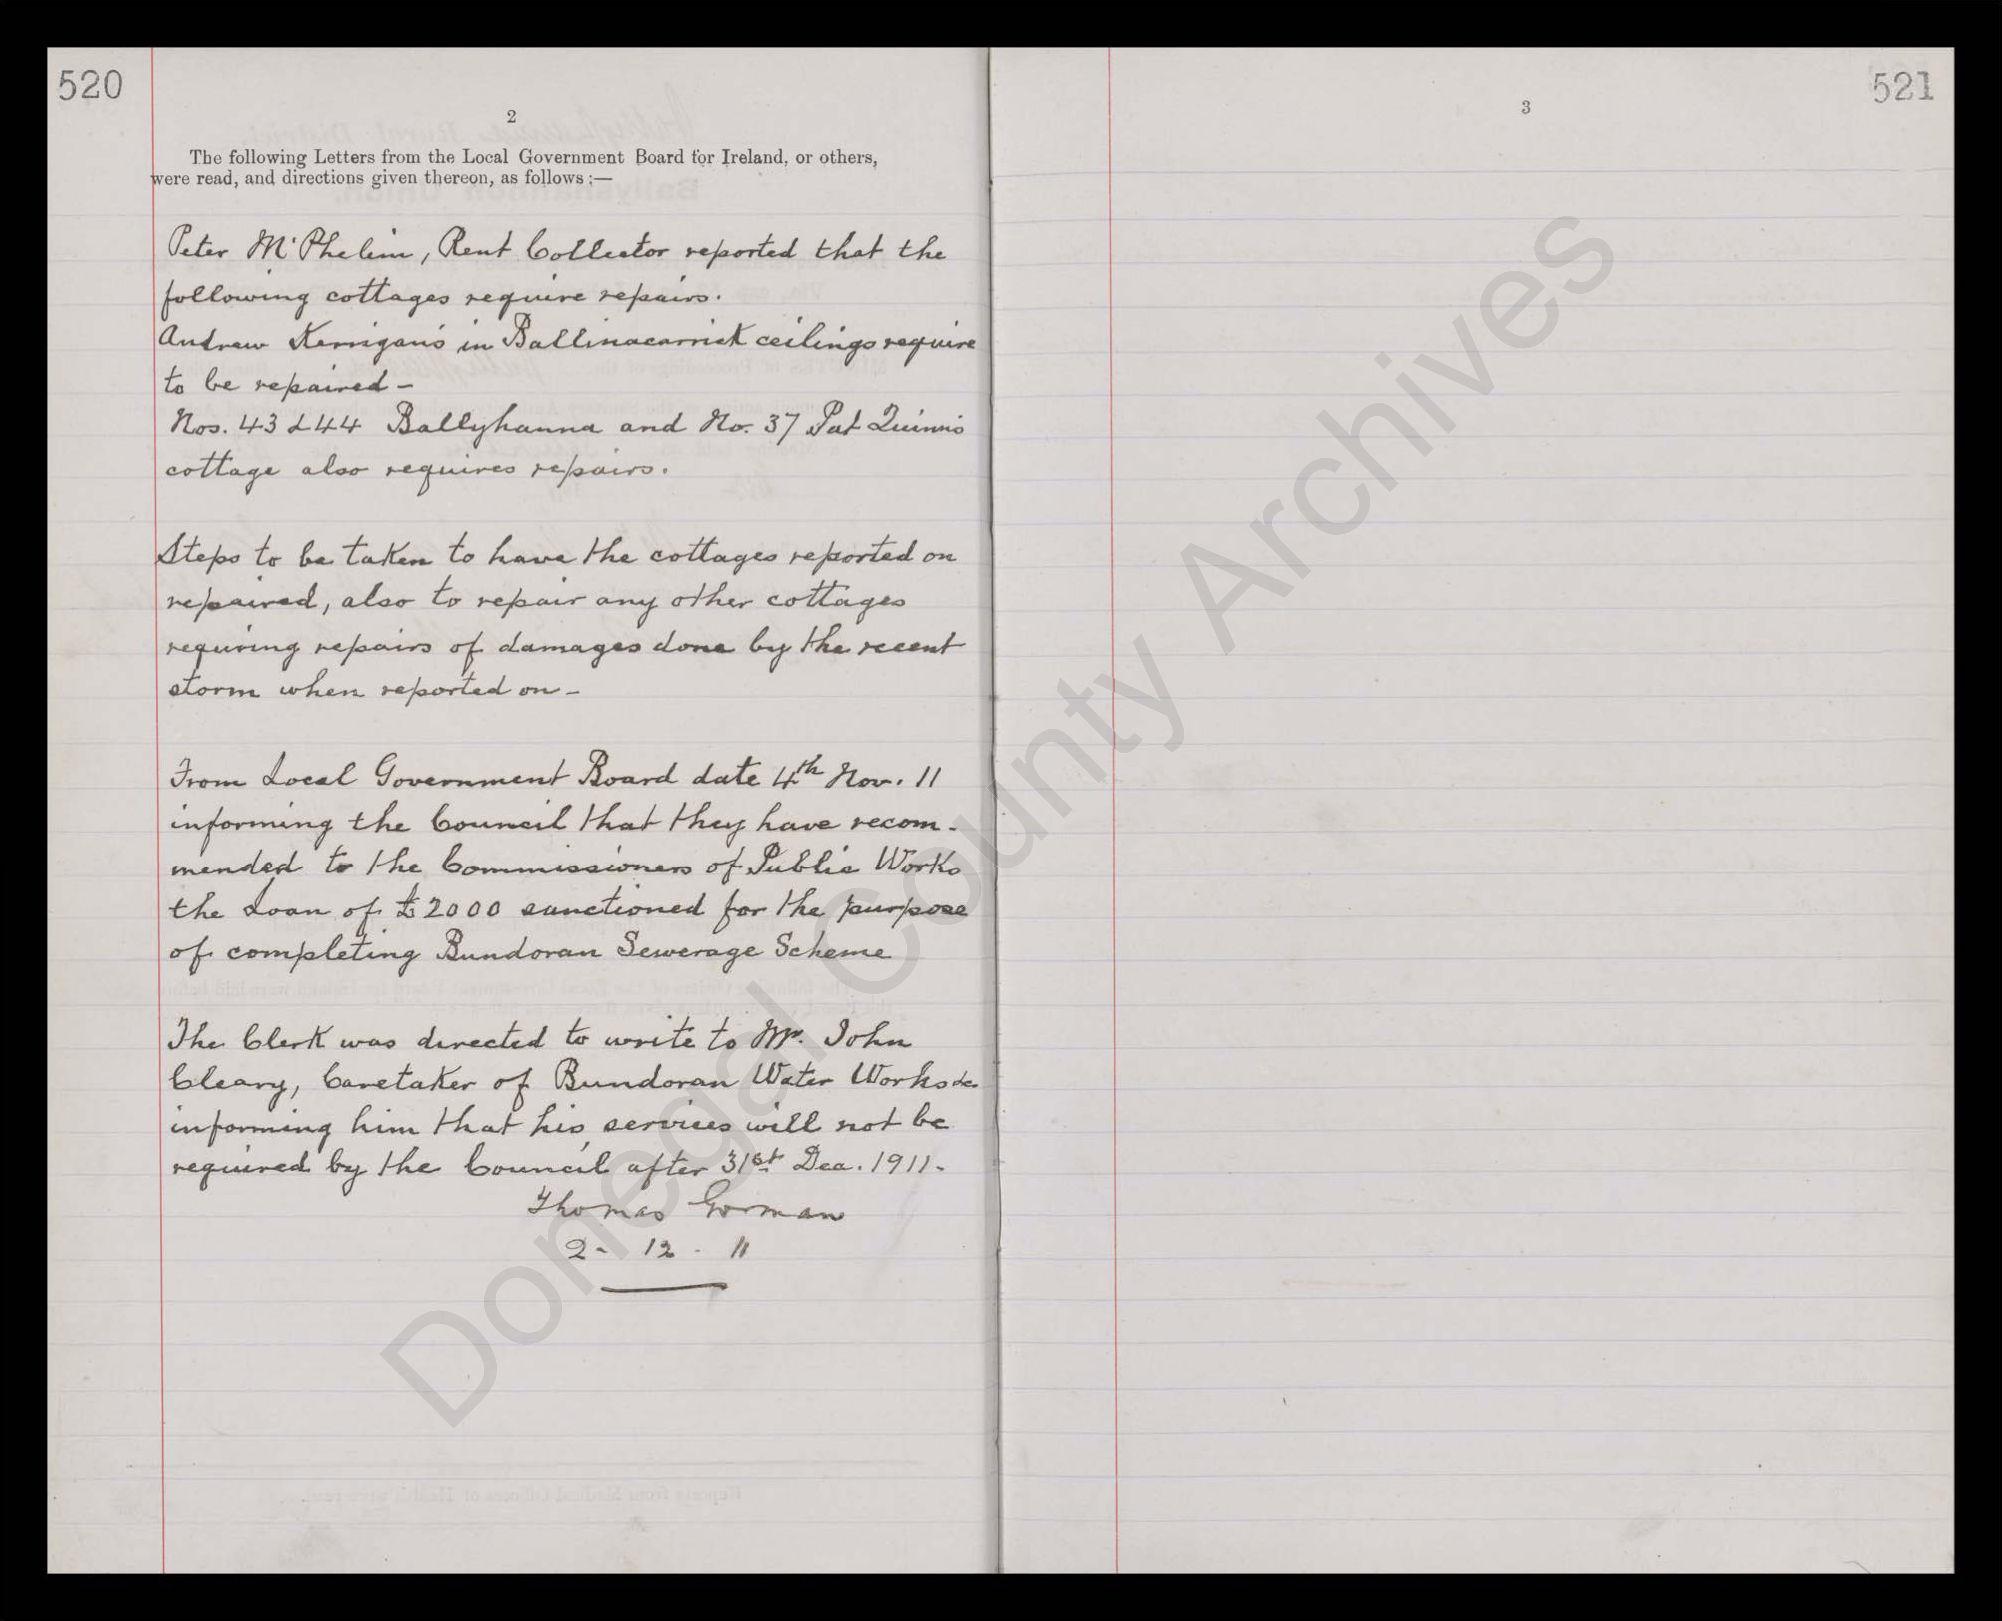 520
2
The following Letters from the Local Government Board for Ireland, or others,
were read, and directions given thereon, as follows :—
Peter McPhelim, Rent Collector reported that the
following cottages require repairs.
Andrew Kerrigan's in Ballinacarrick ceilings require
to be repaired -
Nos. 43 & 44 Ballyhanna and No. 37 Pat Quinn's
cottage also requires repairs.
Steps to be taken to have the cottages reported on
repaired, also to repair any other cottages
requiring repairs of damages done by the recent
storm when reported on -
From Local Government Board date 4th Nov. 11
informing the Council that they have recom-
mended to the Commissioners of Public Works
the Loan of £2000 sanctioned for the purpose
of completing Bundoran Sewerage Scheme
The Clerk was directed to write to Mr. John
Cleary, Caretaker of Bundoran Water Works &c
informing him that his services will not be
required by the Council after 31st Dec. 1911.
Thomas Gorman
2 - 12 - 11
521
3
Donegal County Archives